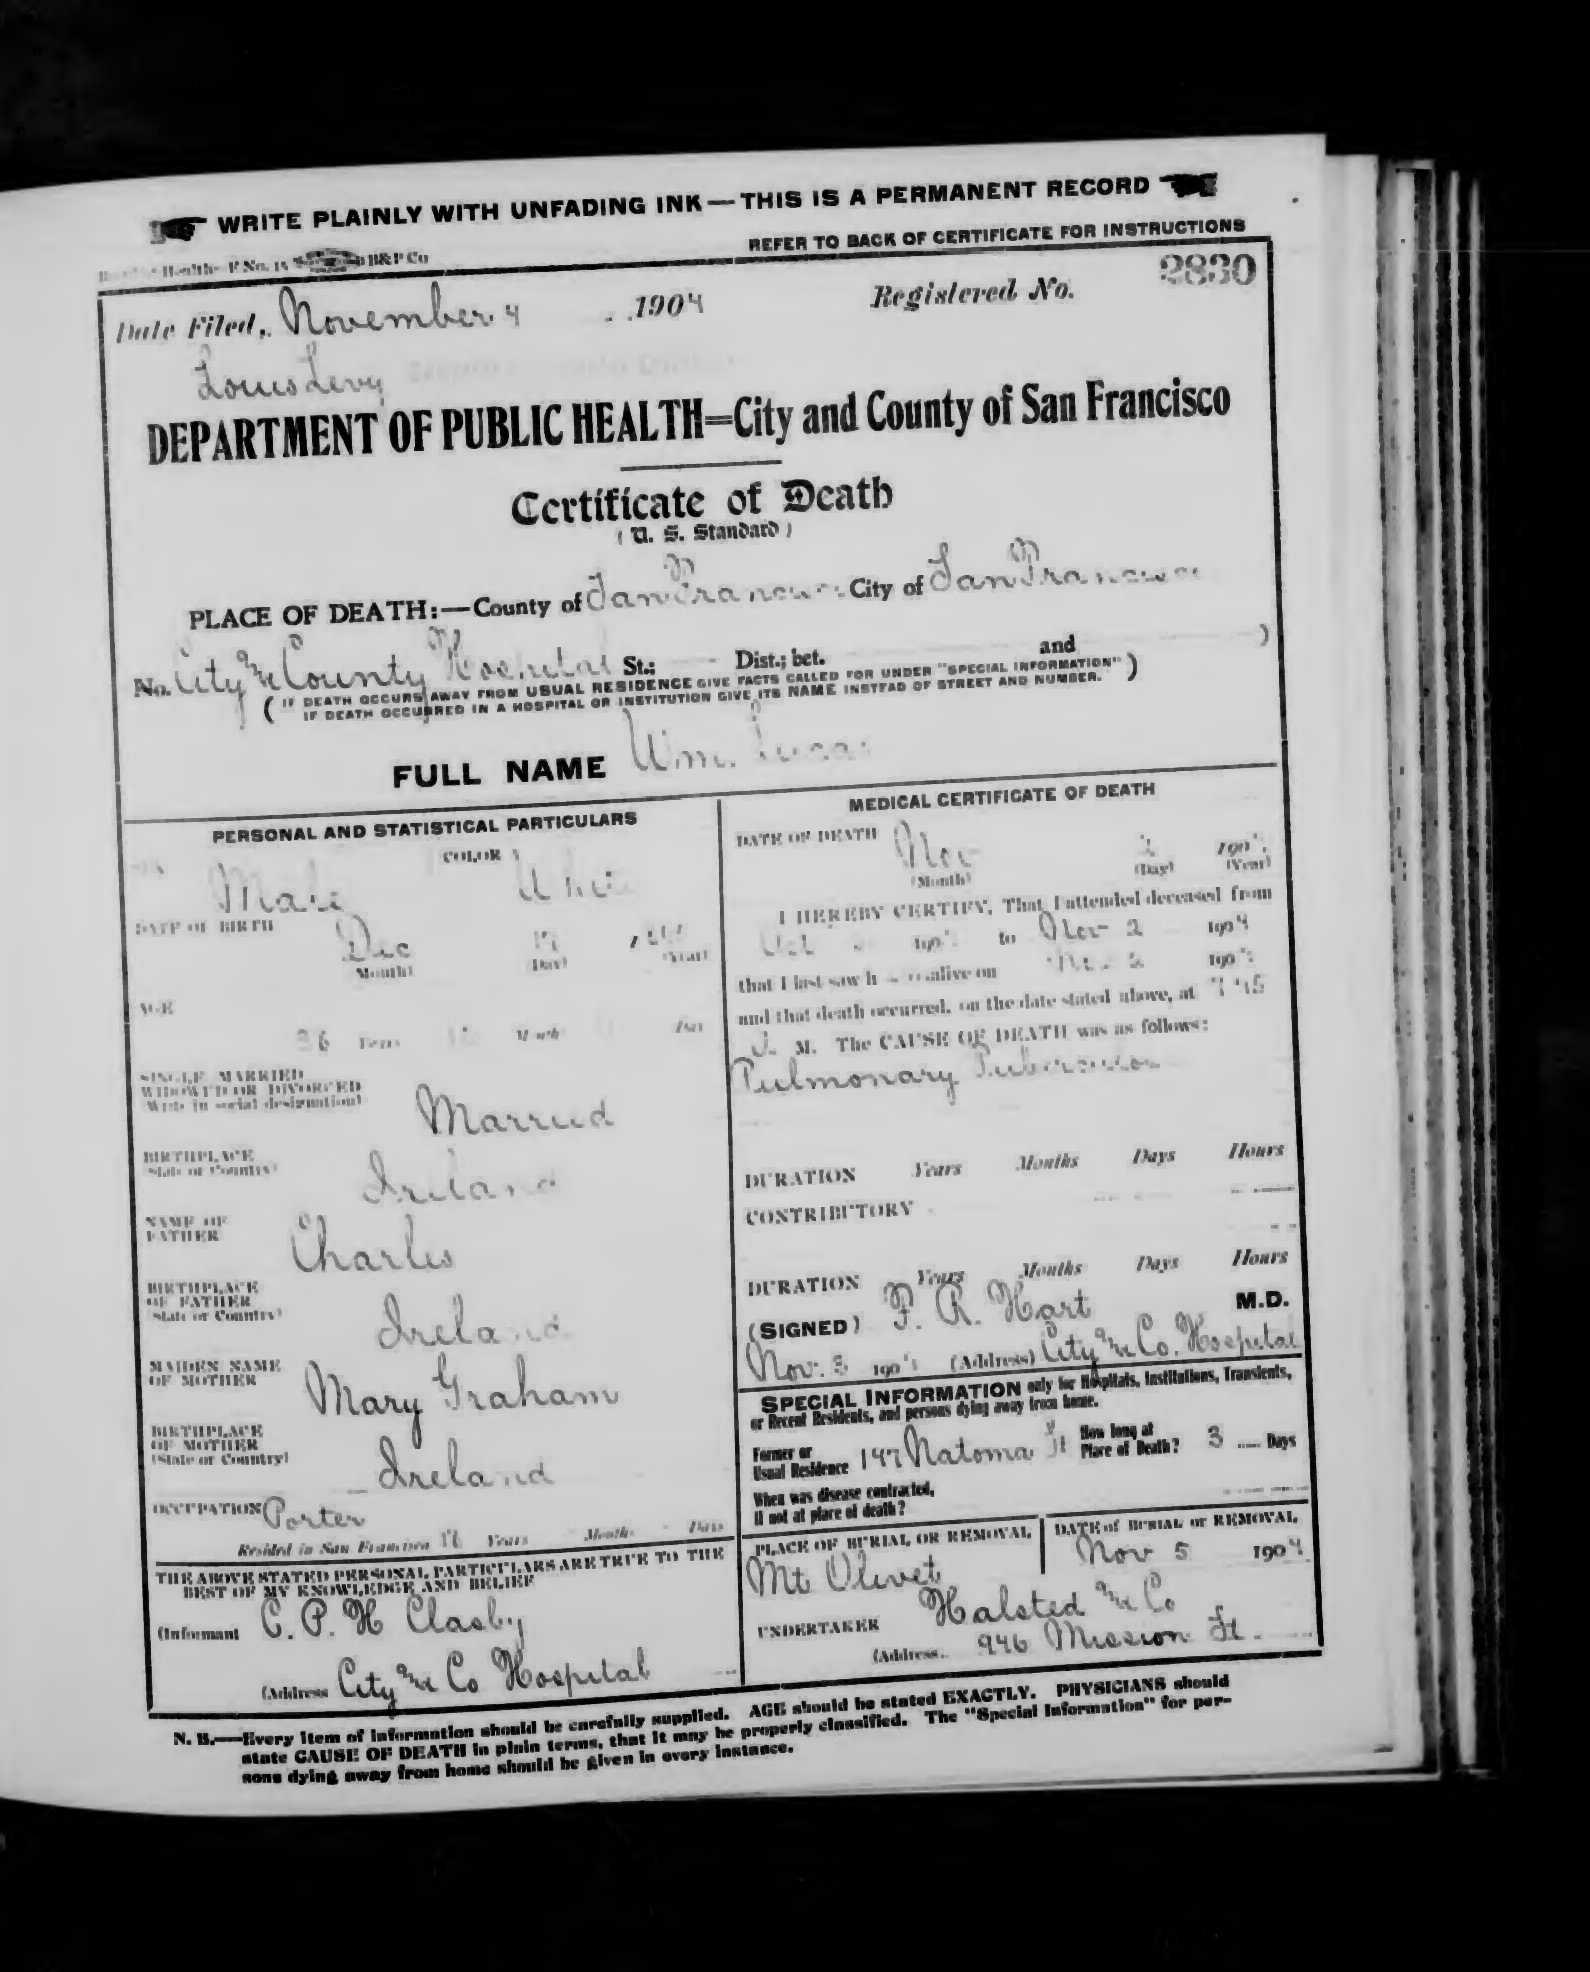 WRITE PLAINLY WITH UNFADING INK—THIS IS A PERMANENT RECORD
REFER TO BACK OF CERTIFICATE FOR INSTRUCTIONS
B&P Co
Date Filed, November 4 1904
Registered No. 2830
Louis Levy
DEPARTMENT OF PUBLIC HEALTH=City and County of San Francisco
Certificate of Death
(U. S. Standard)
PLACE OF DEATH:—County of San Francisco City of San Francisco
No. City & County Hospital St.; Dist.; bet. and )
(IF DEATH OCCURS AWAY FROM USUAL RESIDENCE GIVE FACTS CALLED FOR UNDER "SPECIAL INFORMATION"
IF DEATH OCCURRED IN A HOSPITAL OR INSTITUTION GIVE ITS NAME INSTEAD OF STREET AND NUMBER.)
FULL NAME Wm. Lucas
PERSONAL AND STATISTICAL PARTICULARS
COLOR
Male White
DATE OF BIRTH
Dec
(Month) (Day) (Year)
AGE
36 Years Months Days
SINGLE MARRIED
WIDOWED OR DIVORCED
(Write in social designation)
Married
BIRTHPLACE
(State or Country)
Ireland
NAME OF
FATHER
Charles
BIRTHPLACE
OF FATHER
(State or Country)
Ireland
MAIDEN NAME
OF MOTHER
Mary Graham
BIRTHPLACE
OF MOTHER
(State or Country)
Ireland
OCCUPATION Porter
Resided in San Francisco Years Months Days
THE ABOVE STATED PERSONAL PARTICULARS ARE TRUE TO THE
BEST OF MY KNOWLEDGE AND BELIEF
(Informant C. P. H Clasby
(Address City & Co Hospital
MEDICAL CERTIFICATE OF DEATH
DATE OF DEATH
Nov 2 190
(Month) (Day) (Year)
I HEREBY CERTIFY, That I attended deceased from
Oct 190 to Nov 2 1904
that I last saw h alive on Nov 2 190
and that death occurred, on the date stated above, at
M. The CAUSE OF DEATH was as follows:
Pulmonary Tuberculosis
DURATION Years Months Days Hours
CONTRIBUTORY
DURATION Years Months Days Hours
(SIGNED) F. R. Hart M.D.
Nov. 3 190 (Address) City & Co. Hospital
SPECIAL INFORMATION only for Hospitals, Institutions, Transients,
or Recent Residents, and persons dying away from home.
Former or
Usual Residence 147 Natoma St
How long at
Place of Death? 3 Days
When was disease contracted,
If not at place of death?
PLACE OF BURIAL OR REMOVAL
Mt Olivet
DATE of BURIAL or REMOVAL
Nov 5 1904
UNDERTAKER Halsted & Co
(Address 946 Mission St.
N. B.—Every item of information should be carefully supplied. AGE should be stated EXACTLY. PHYSICIANS should
state CAUSE OF DEATH in plain terms, that it may be properly classified. The "Special Information" for per-
sons dying away from home should be given in every instance.